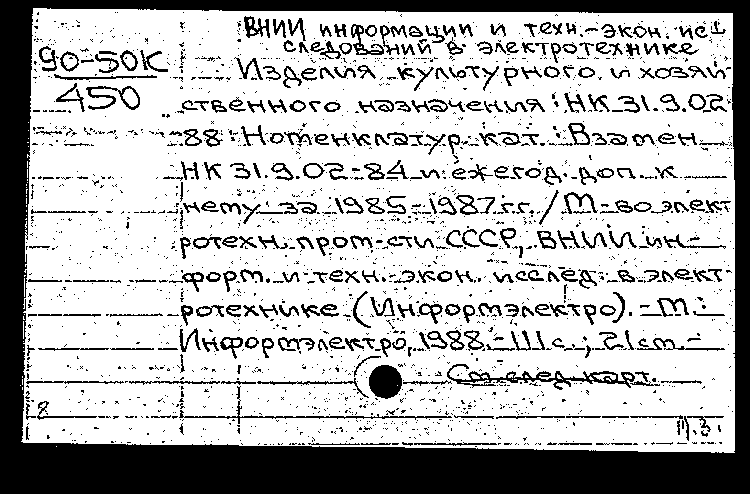 ВНИИ информации и техн.-экон. исс
следований в электротехнике
90-50К
450
Изделия культурного и хозяй
ственного назначения : НК 31.9.02
88 : Номенклатур. кат. : Взамен
НК 31.9.02-84 и ежегод. доп. к
нему за 1985-1987 г.г. / М-во элект
ротехн. пром-сти СССР, ВНИИ ин-
форм. и техн.-экон. исслед. в элект
ротехнике (Информэлектро). - М. :
Информэлектро, 1988. - 111 с. ; 21 см. -
См след. карт.
8
М.З.